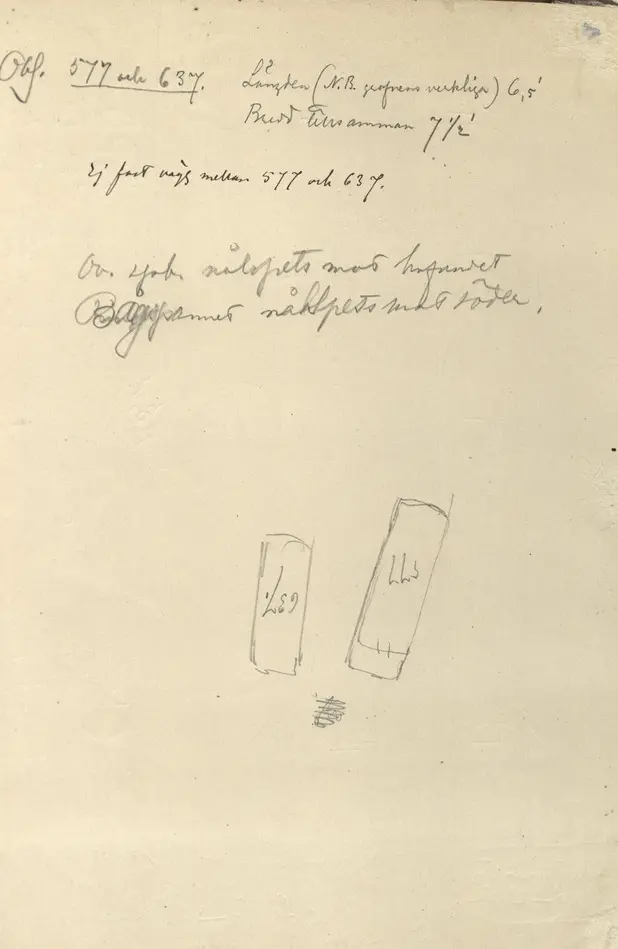 Obs. 577 och 637. Längden (N.B. grafvens verkliga) 6,5'
Bredd tillsamman 7 1/2'
Ej fast vägg mellan 577 och 637.
nålspets mot
nålspets mot söder.
577
637.